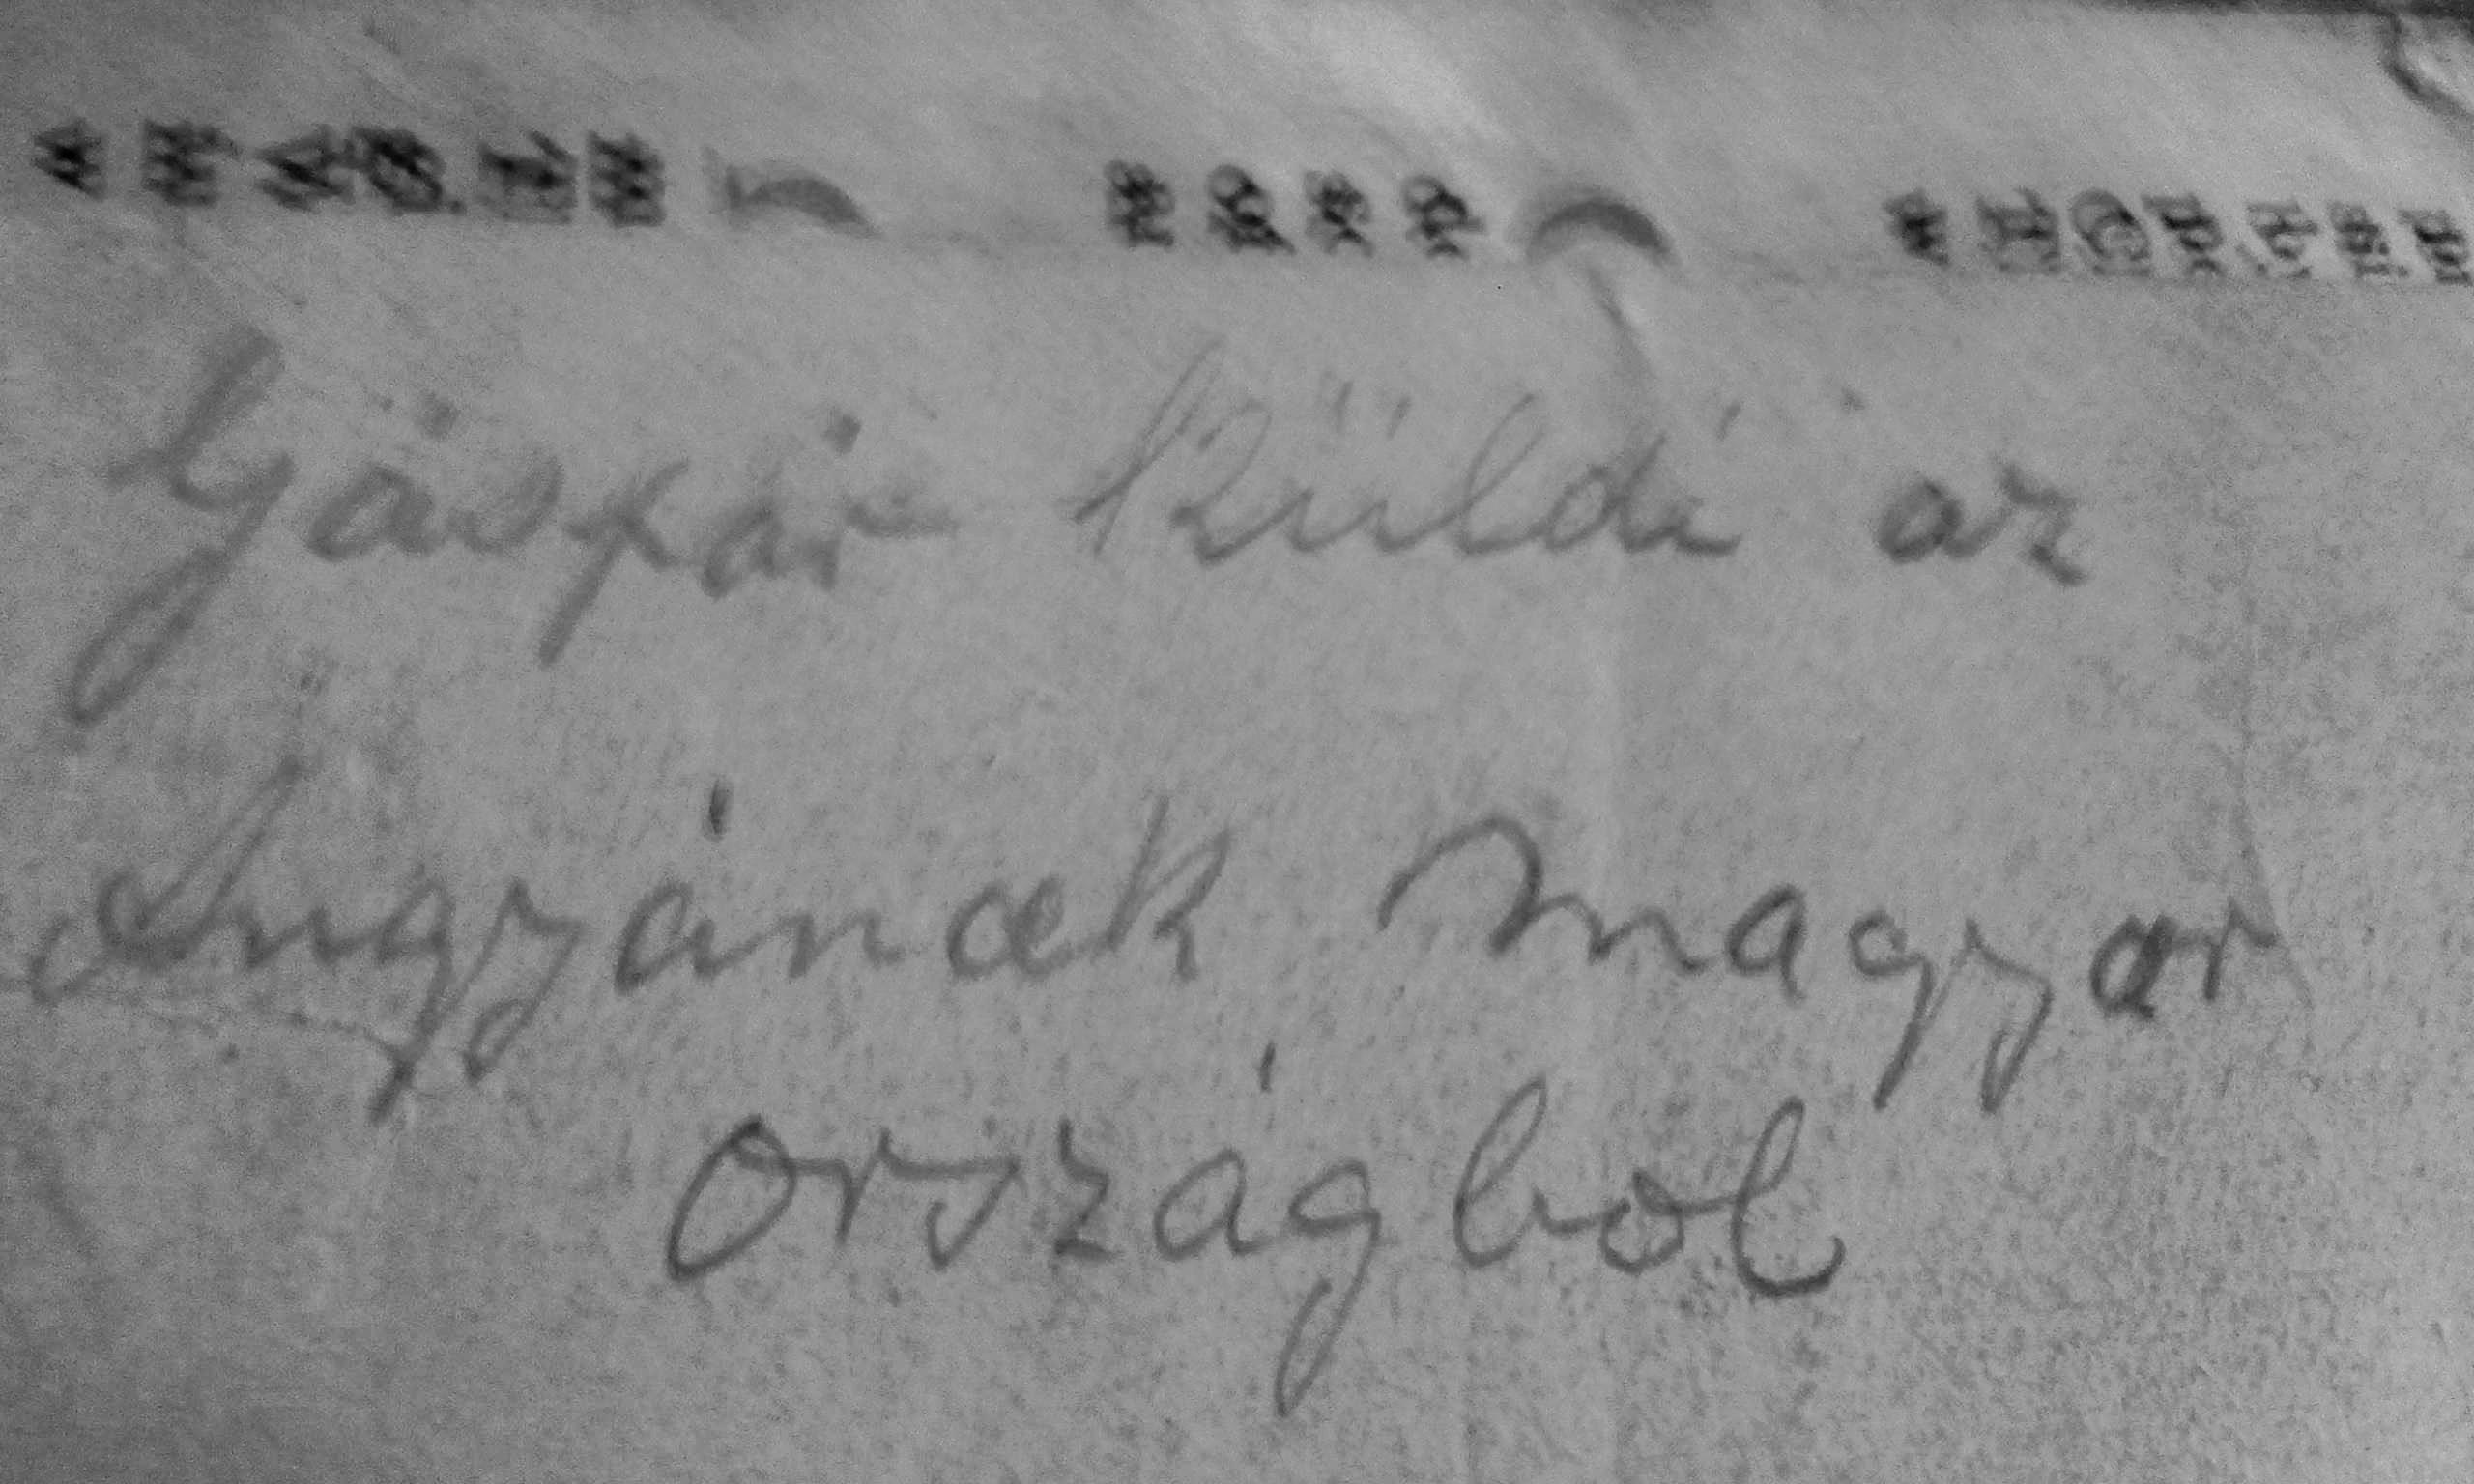 Gáspár küldi az
Angyának magyar
országbol